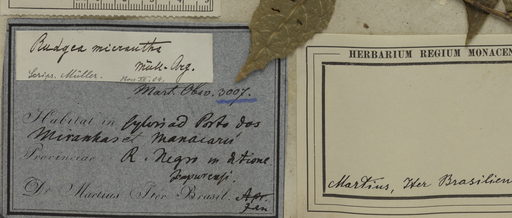 Rudgea micrantha
Müll. Arg.
Scrips. Müller.
Mart. Obs. 3007.
Habitat in sylvis ad Porto dos
Miranhas et Manacarú
Provinciae R. Negro in ditione
Japurensi.
Dr. Martius Iter Brasil.
Jan
HERBARIUM REGIUM MONACEN
Martius, Iter Brasilien